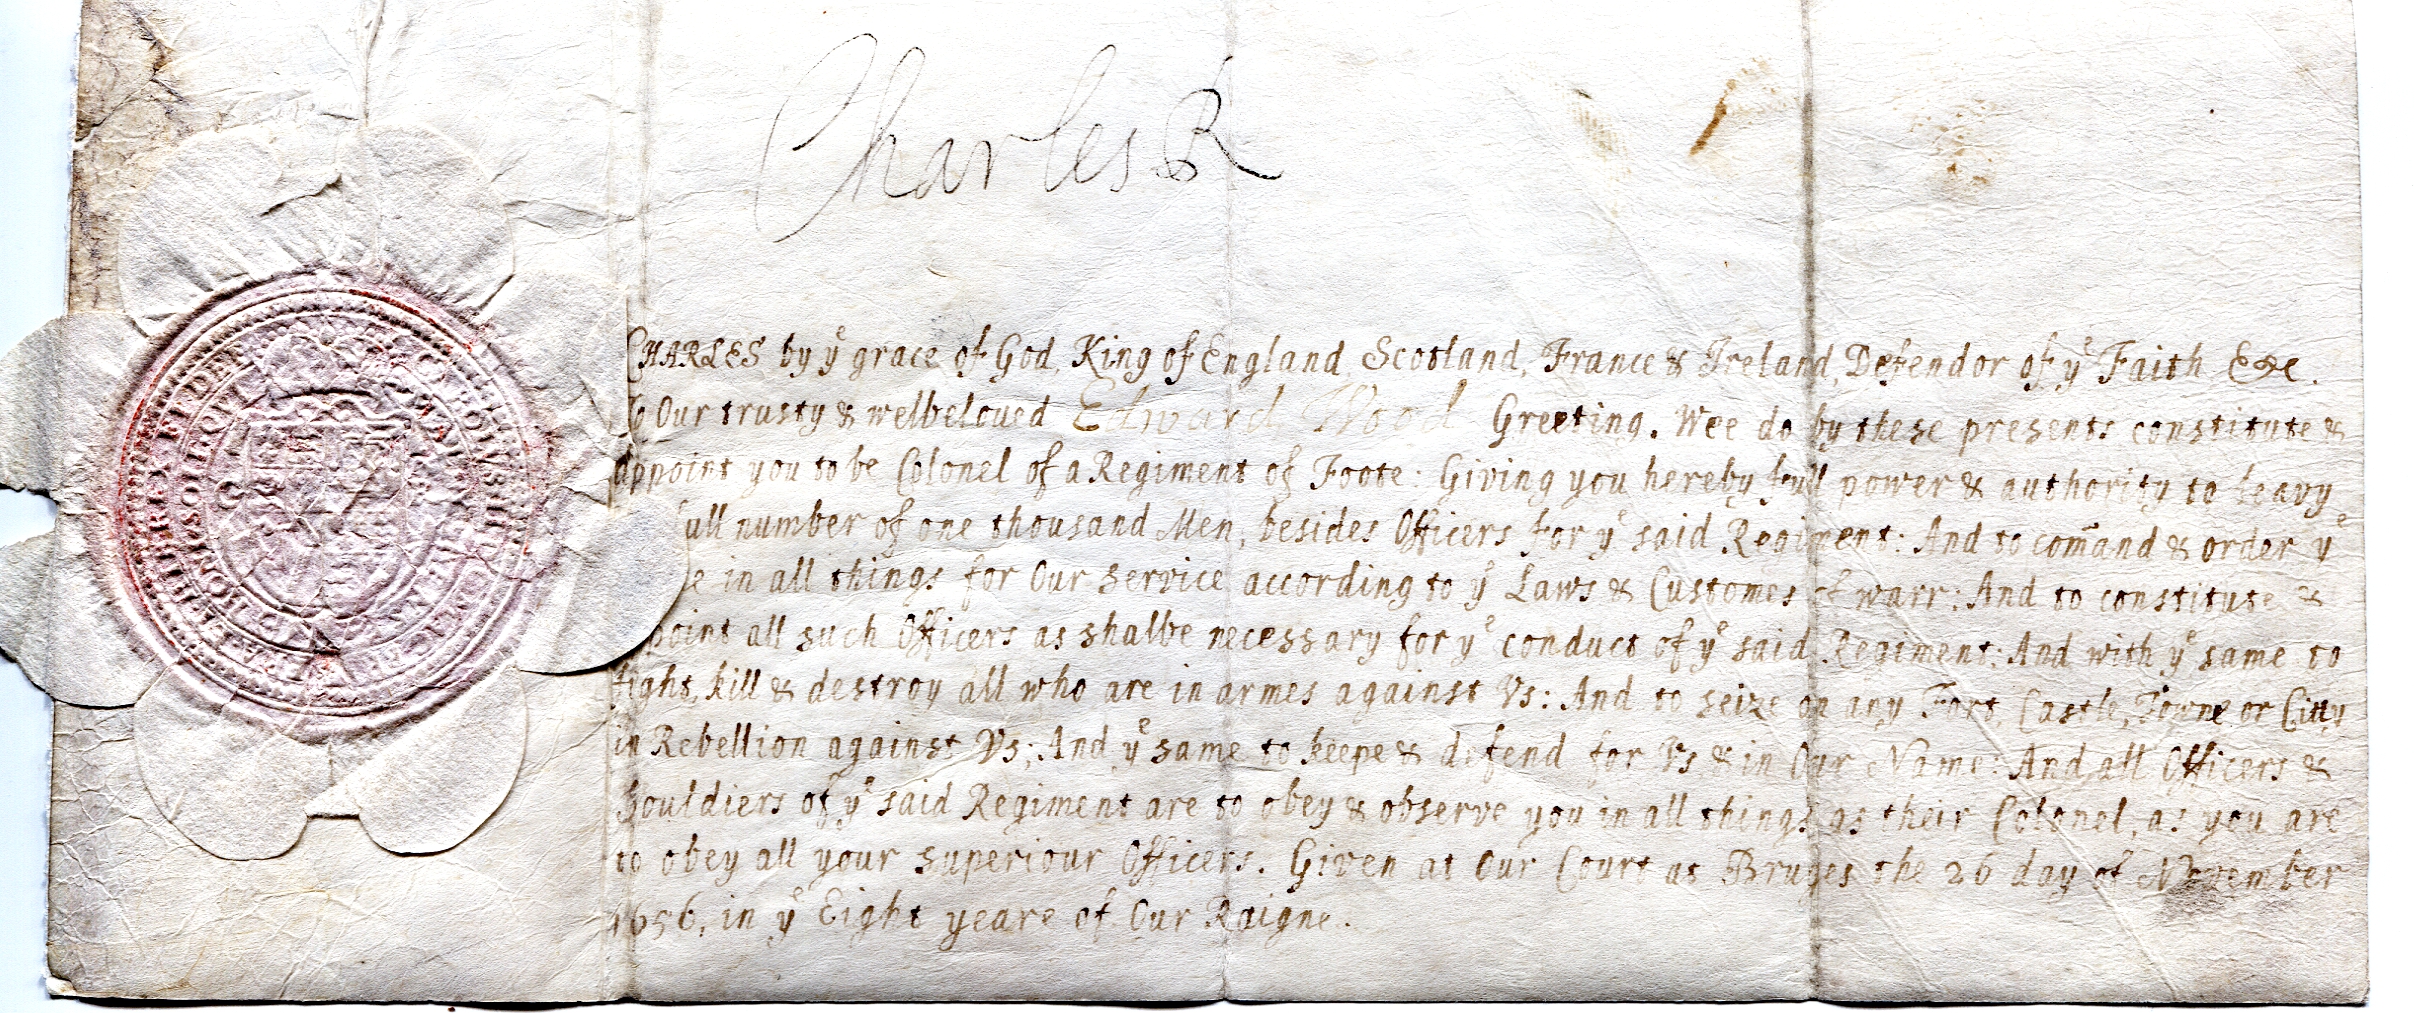 Charles R
CHARLES by yᵉ grace of God, King of England Scotland, France & Ireland, Defendor of yᵉ Faith &c.
To Our trusty & welbeloued Edward Wood Greeting. Wee do by these presents constitute &
appoint you to be Colonel of a Regiment of Foote: Giving you hereby full power & authority to leavy
full number of one thousand Men, besides Officers for yᵉ said Regiment: And to com̃and & order yᵉ
in all things for Our service according to yᵉ Laws & Customes of warr: And to constitute &
point all such Officers as shalbe necessary for yᵉ conduct of yᵉ said Regiment: And with yᵉ same to
fight, kill & destroy all who are in armes against Vs: And to seize on any Fort, Castle, Towne or Citty
in Rebellion against Vs; And yᵉ same to keepe & defend for Vs & in Our Name: And all Officers &
Souldiers of yᵉ said Regiment are to obey & observe you in all things as their Colonel, as you are
to obey all your superiour Officers. Given at Our Court at Bruges the 26 day of November
1656, in yᵉ Eight yeare of Our Raigne.